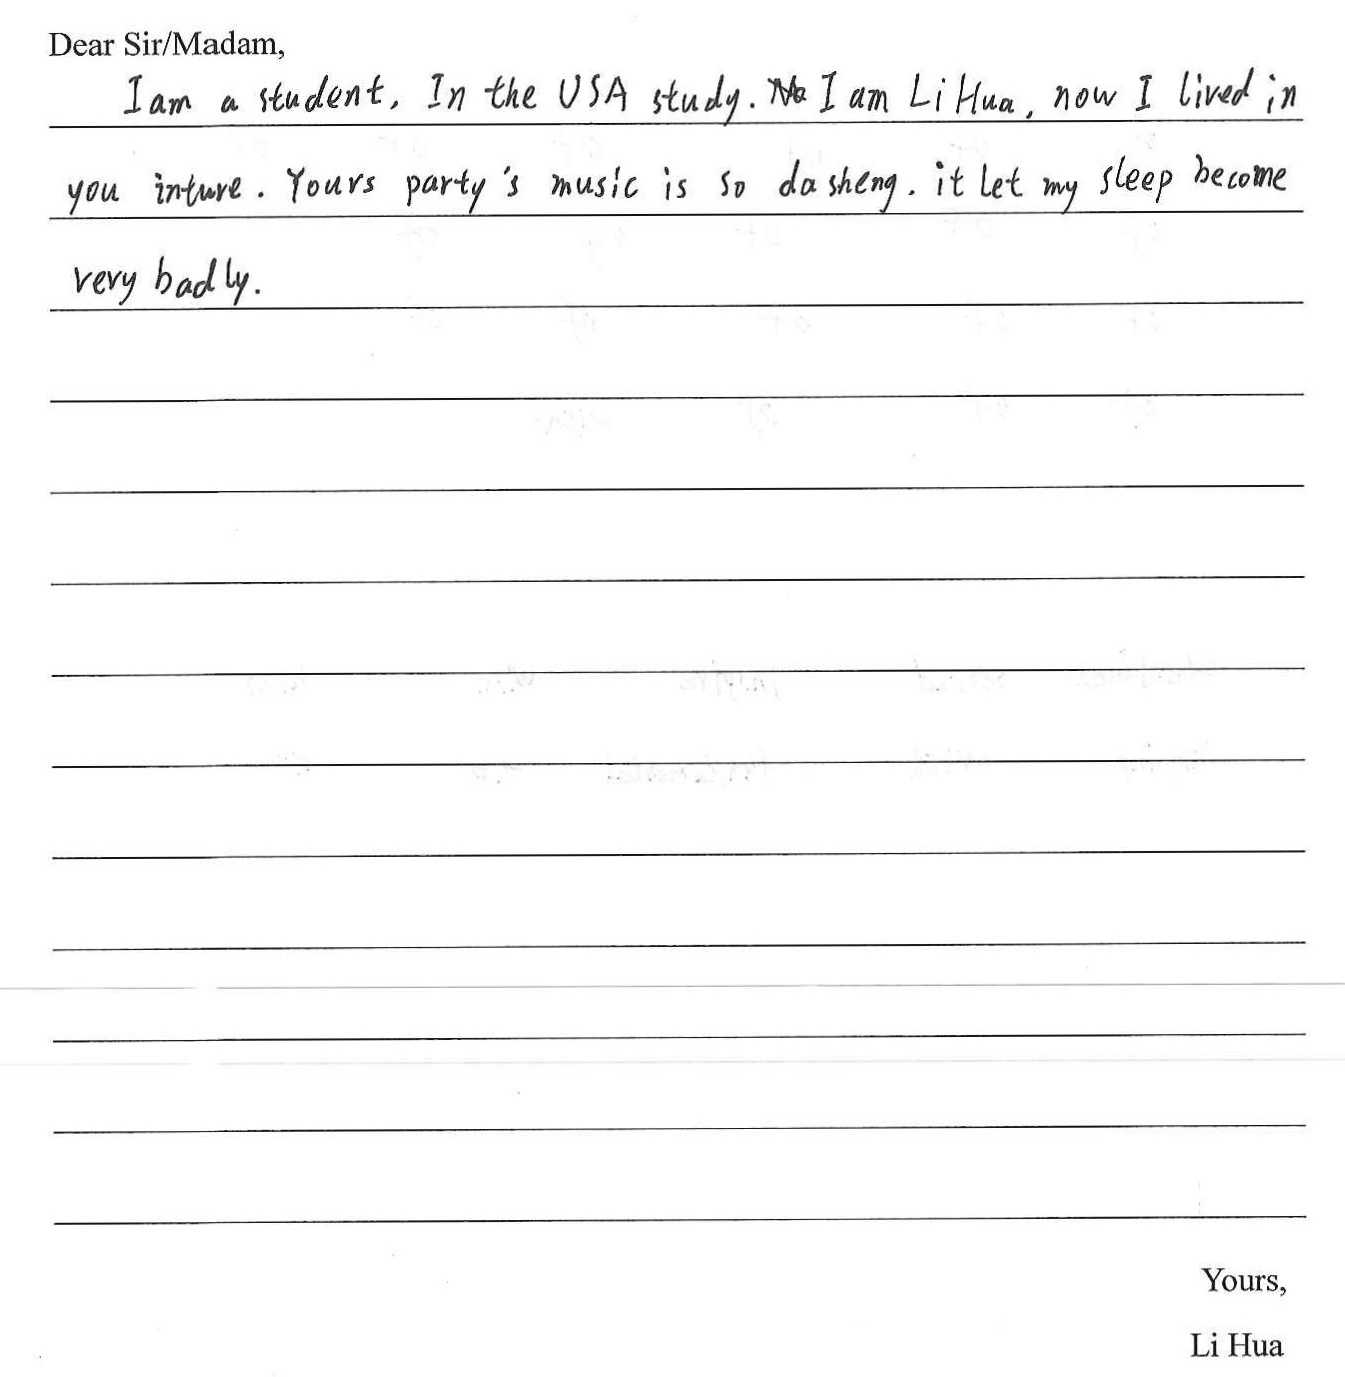 Dear Sir/Madam,
I am a student, In the USA study. I am Li Hua, now I lived in
you inture. Yours party's music is so da sheng. it let my sleep become
very badly.
Yours,
Li Hua